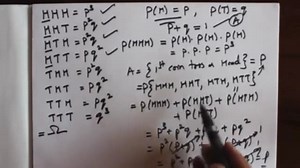 HHH = p³ ✓
HHT = p²q ✓
HTH = p²q ✓
HTT = pq² ✓
THH = p²q
THT = pq²
TTH = pq²
TTT = q³
= Ω
P(H) = p, P(T) = q
p + q = 1
P(HHH) = P(H). P(H). P(H)
= p. p. p = p³
A = {1st coin toss a Head} = p
= P{HHH, HHT, HTH, HTT}
= P(HHH) + P(HHT) + P(HTH)
+ P(HTT)
= p³ + p²q + p²q + pq²